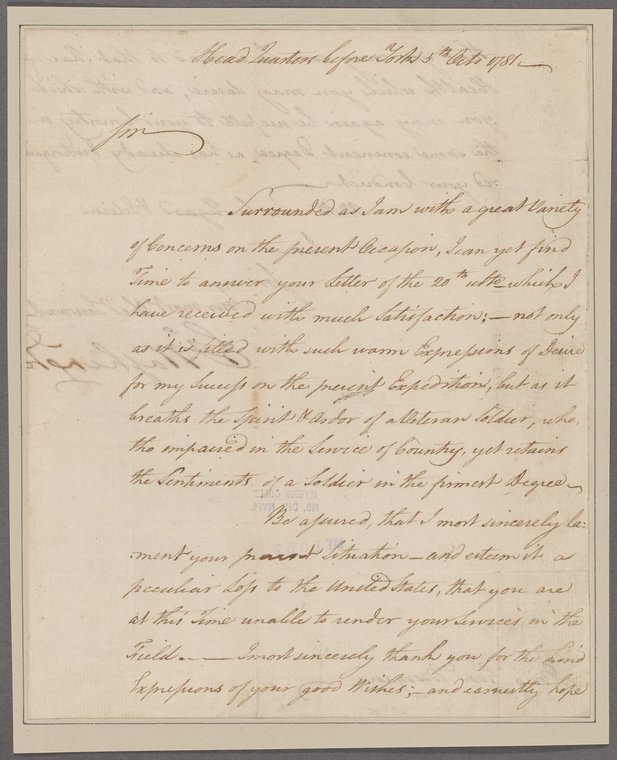 Head Quarters before York 5th Octo 1781.
Sir
Surrounded as I am with a great Variety
of Concerns on the present Occasion, I can yet find
Time to answer your Letter of the 20th ulto which I
have received with much Satisfaction; — not only
as it is filled with such warm Expressions of Desire
for my Success on the present Expedition, but as it
breaths the Spirit & Ardor of a Veteran Soldier, who,
tho impaired in the Service of Country, yet retains
the Sentiments of a Soldier in the firmest Degree —
Be assured, that I most sincerely la:
:ment your present Situation — and esteem it a
peculiar Loss to the United States, that you are
at this Time unable to render your Services in the
Field. — I most sincerely thank you for the kind
Expressions of your good Wishes; — and earnestly hope